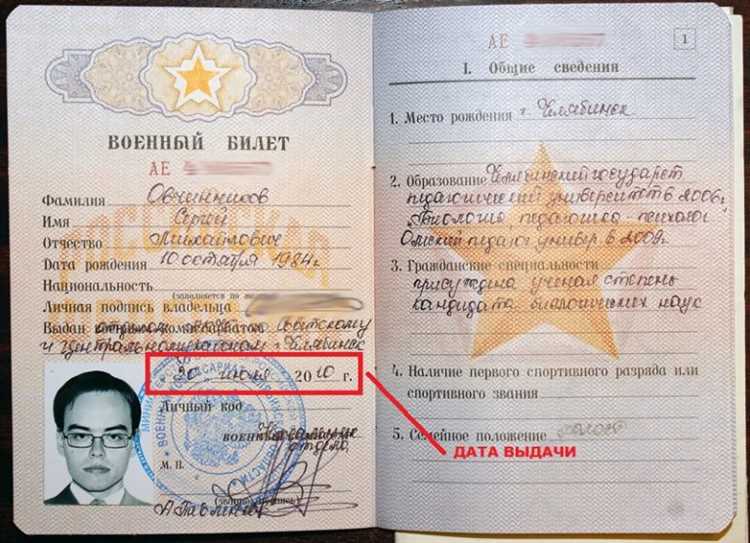 ВОЕННЫЙ БИЛЕТ
АЕ
Фамилия Овчинников
Имя Сергей
Отчество Михайлович
Дата рождения 10 октября 1984г
Национальность
(заполняется по
Личная подпись владельца
Выдан отделом военного комиссариата Советскому
и Центральному г. Челябинск
30 июля 2010 г.
Личный код
военного
отдела
М. П.
АЕ
1
I. Общие сведения
1. Место рождения г. Челябинск
2. Образование государст
педагогический университет в 2006г
"Биология" педагог-психолог
Омский педаг универ в 2009г
3. Гражданские специальности
присуждена ученая степень
кандидата биологических наук
4. Наличие первого спортивного разряда или
спортивного звания
5. Семейное положение холост
ДАТА ВЫДАЧИ